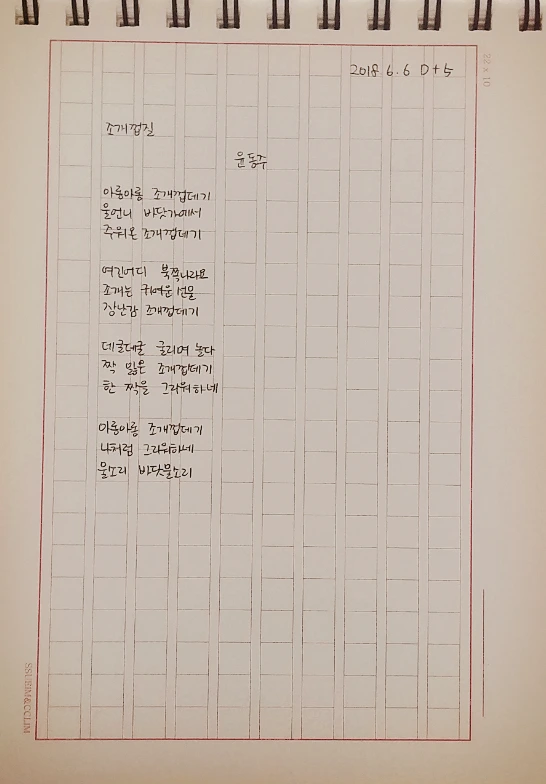 2018 6.6 D+5
22 x 10
조개껍질
윤동주
아롱아롱 조개껍데기
울언니 바닷가에서
주워온 조개껍데기
여긴여긴 북쪽나라요
조개는 귀여운 선물
장난감 조개껍데기
데굴데굴 굴리며 놀다
짝 잃은 조개껍데기
한 짝을 그리워하네
아롱아롱 조개껍데기
나처럼 그리워하네
물소리 바닷물소리